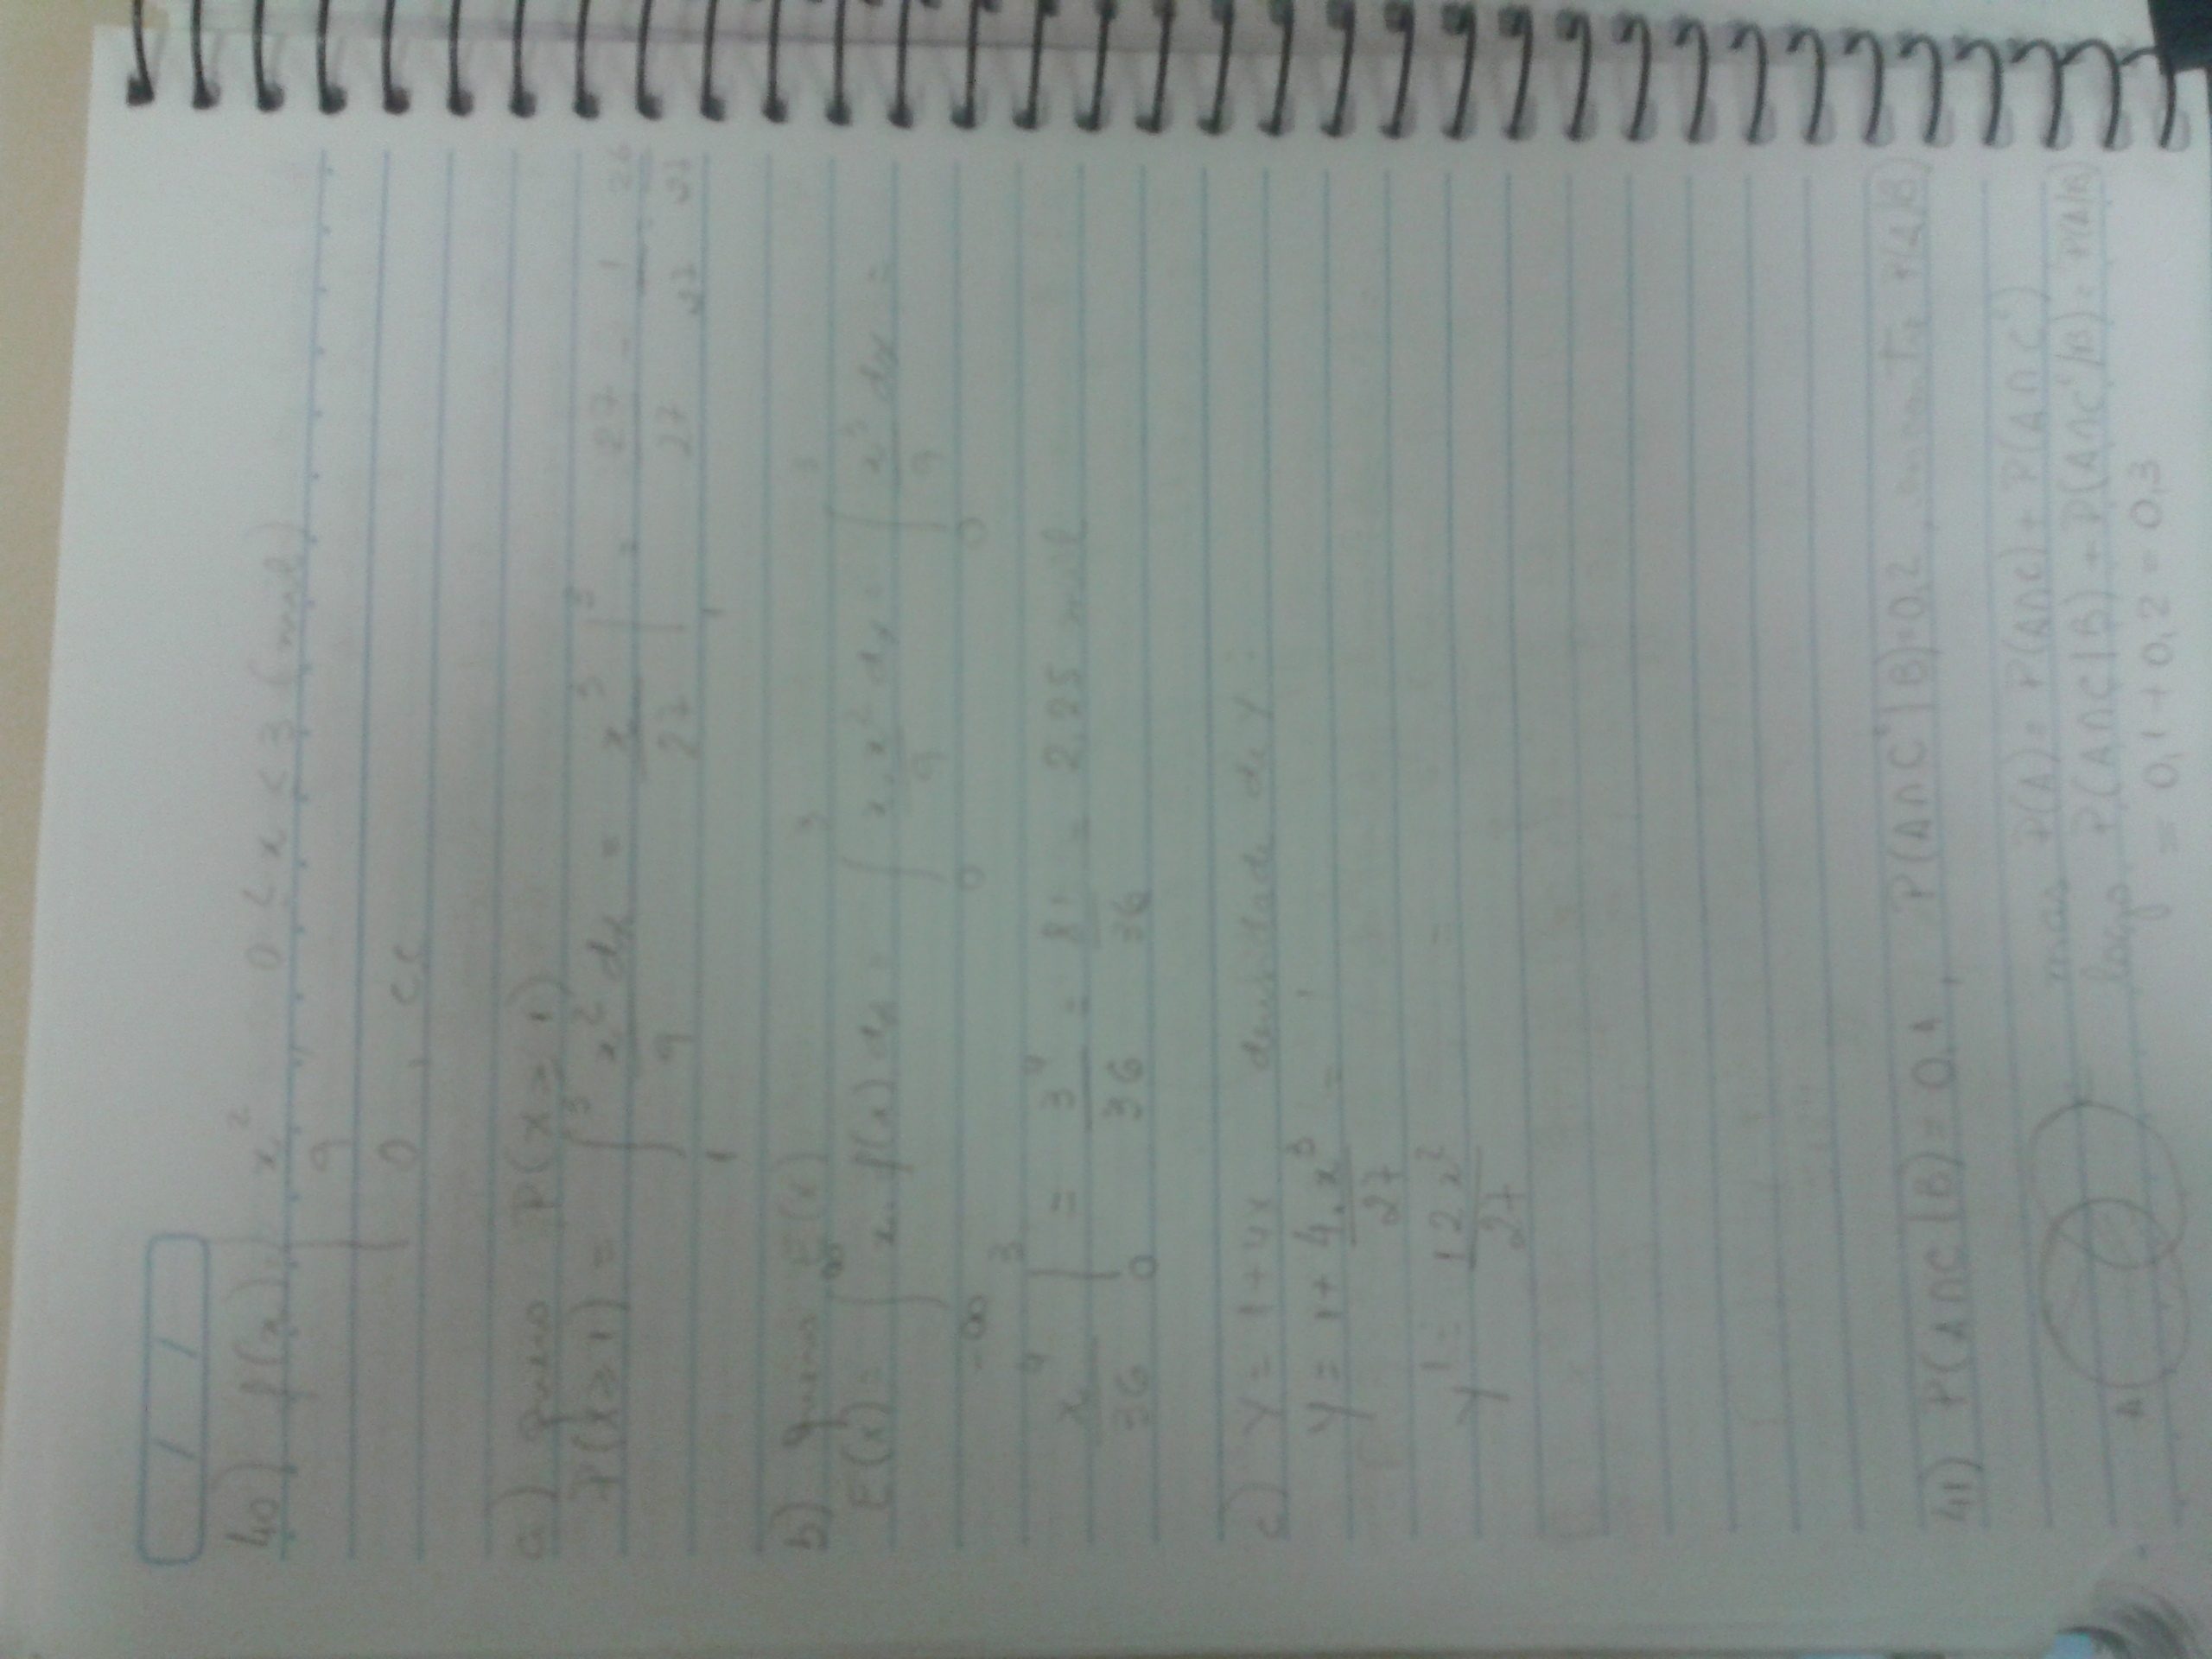 / /
40) f(x) = x²/9 0 < x < 3 (mil)
0, cc
a) P(x ≥ 1)
P(x ≥ 1) = ∫₁³ x²/9 dx = x³/27 |₁³ = 27/27 - 1/27 = 26/27
b) E(x)
E(x) = ∫_{-∞}^{∞} x . f(x) dx = ∫₀³ x . x²/9 dx = ∫₀³ x³/9 dx =
x⁴/36 |₀³ = 3⁴/36 = 81/36 = 2,25 mil
c) Y = 1 + 4x densidade de Y:
y = 1 + 4 . x³/27 =
y' = 12x²/27 =
41) P(A∩C|B) = 0,1, P(A∩Cᶜ|B) = 0,2, P(A|B)
mas P(A) = P(A∩C) + P(A∩Cᶜ)
logo P(A∩C|B) + P(A∩Cᶜ|B) = P(A|B)
A
= 0,1 + 0,2 = 0,3